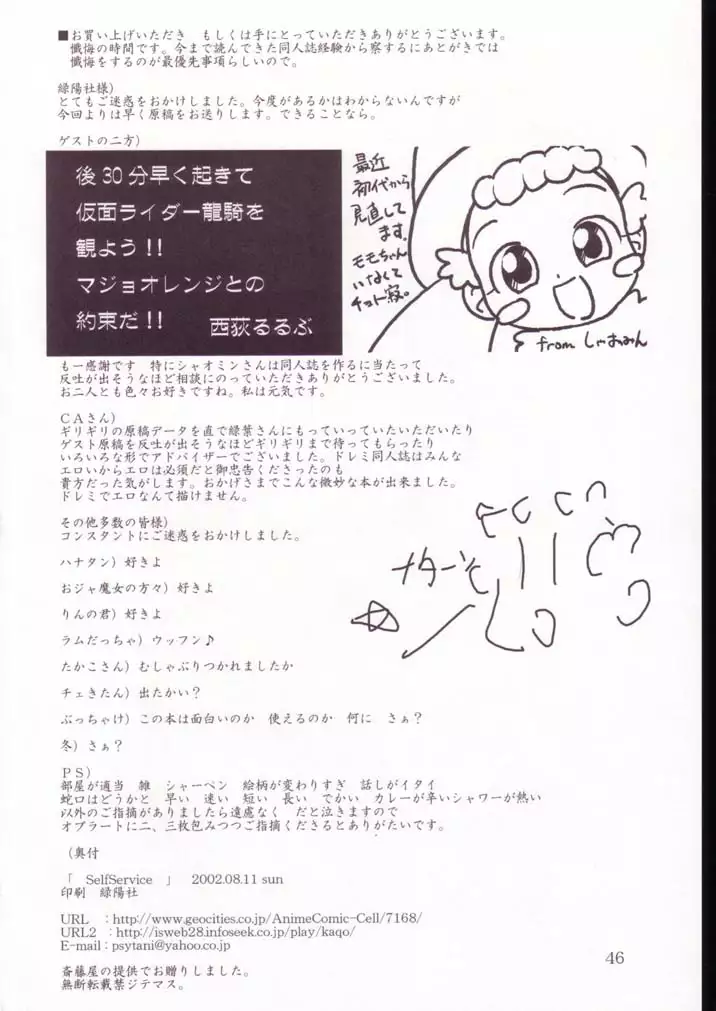 ■お買い上げいただき　もしくは手にとっていただきありがとうございます。
懺悔の時間です。今まで読んできた同人誌経験から察するにあとがきでは
懺悔をするのが最優先事項らしいので。
緑陽社様）
とてもご迷惑をおかけしました。今度があるかはわからないんですが
今回よりは早く原稿をお送りします。できることなら。
ゲストの二方）
後30分早く起きて
仮面ライダー龍騎を
観よう!!
マジョオレンジとの
約束だ!!　西荻るるぶ
最近
初代から
見直して
ます。
モモちゃん
いなくて
チョット寂。
from しゃおみん
も一感謝です　特にシャオミンさんは同人誌を作るに当たって
反吐が出そうなほど相談にのっていただきありがとうございました。
お二人とも色々お好きですね。私は元気です。
ＣＡさん）
ギリギリの原稿データを直で緑葉さんにもっていっていたいただいたり
ゲスト原稿を反吐が出そうなほどギリギリまで待ってもらったり
いろいろな形でアドバイザーでございました。ドレミ同人誌はみんな
エロいからエロは必須だと御忠告くださったのも
貴方だった気がします。おかげさまでこんな微妙な本が出来ました。
ドレミでエロなんて描けません。
その他多数の皆様）
コンスタントにご迷惑をおかけしました。
ハナタン）好きよ
おジャ魔女の方々）好きよ
りんの君）好きよ
ラムだっちゃ）ウッフン♪
たかこさん）むしゃぶりつかれましたか
チェきたん）出たかい？
ぶっちゃけ）この本は面白いのか　使えるのか　何に　さぁ？
冬）さぁ？
ＰＳ）
部屋が適当　雑　シャーペン　絵柄が変わりすぎ　話しがイタイ
蛇口はどうかと　早い　迷い　短い　長い　でかい　カレーが辛いシャワーが熱い
以外のご指摘がありましたら遠慮なく　だと泣きますので
オブラートに二、三枚包みつつご指摘くださるとありがたいです。
（奥付
「　SelfService　」　2002.08.11 sun
印刷　緑陽社
URL　：http://www.geocities.co.jp/AnimeComic-Cell/7168/
URL2　：http://isweb28.infoseek.co.jp/play/kaqo/
E-mail：psytani@yahoo.co.jp
斎藤屋の提供でお贈りしました。
無断転載禁ジテマス。
46